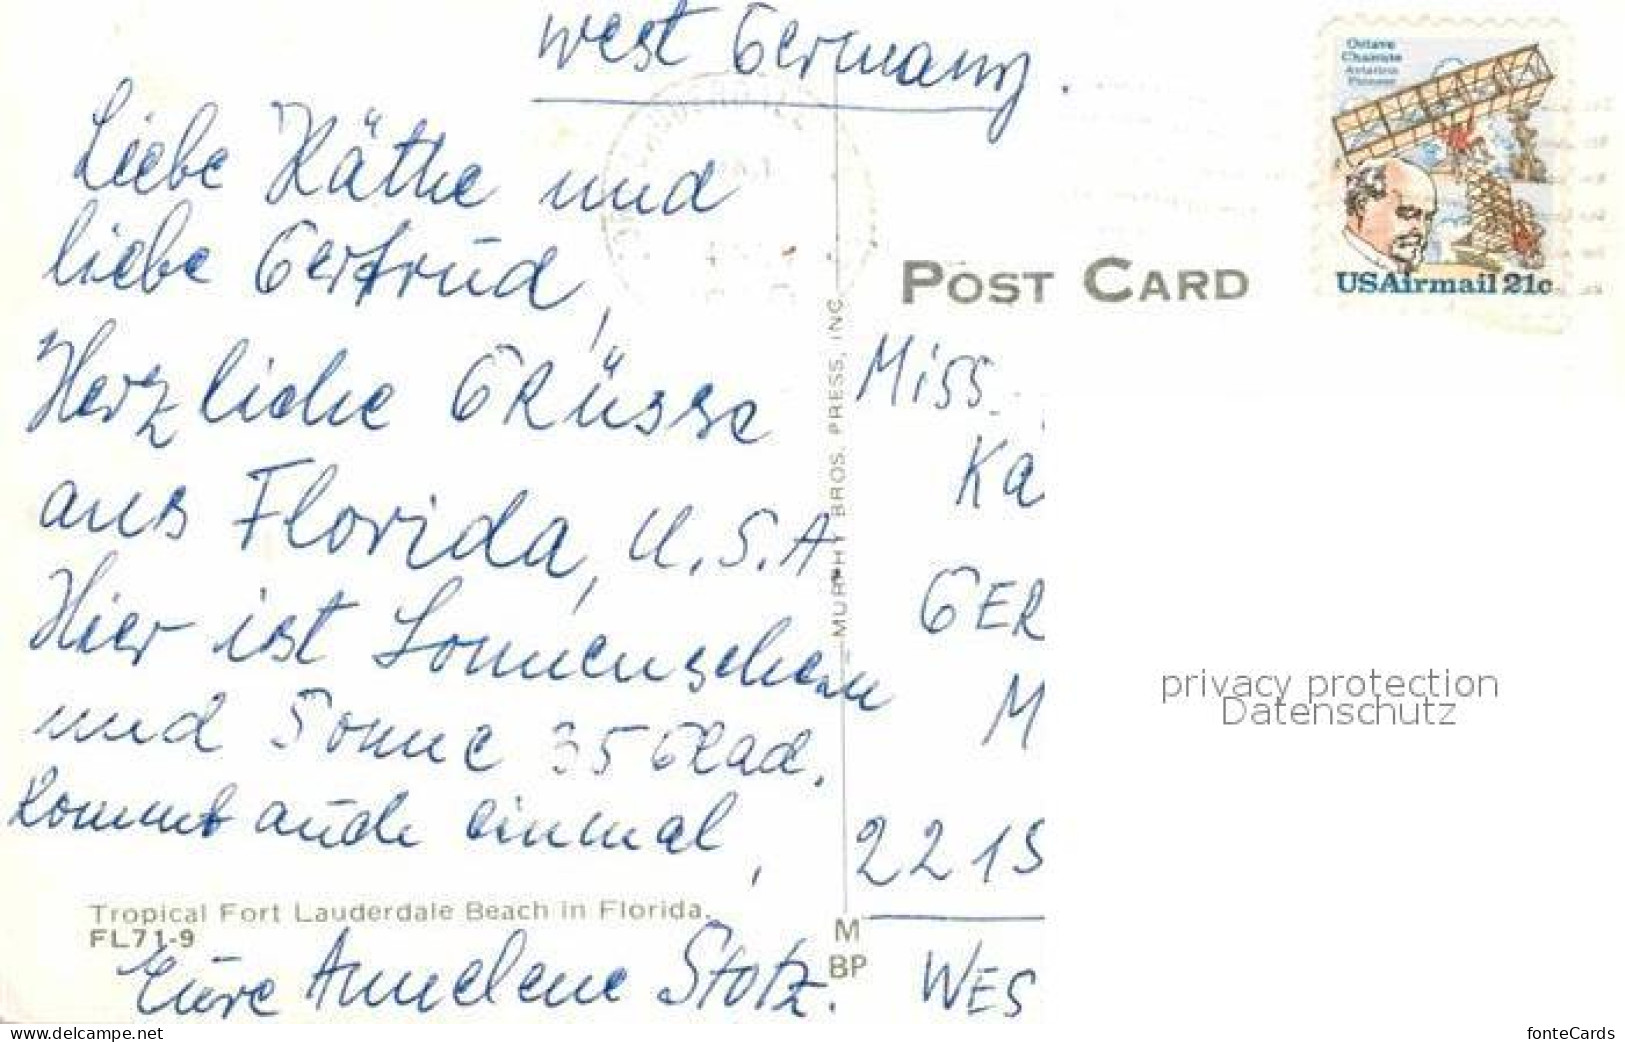 West Germany.
Liebe Käthe und
liebe Gertrud,
Herzliche Grüsse
aus Florida, U.S.A
Hier ist Sonnenschein
und Sonne 35 Grad.
Kommt auch einmal,
Tropical Fort Lauderdale Beach in Florida.
FL71-9
Eure Annelene Stotz.
MURPHY BROS. PRESS, INC.
M
BP
POST CARD
Octave
Chanute
Aviation
Pioneer
USAirmail 21c
Miss
Ka
GER
M
2215
WES
privacy protection
Datenschutz
https://www.delcampe.net
fonteCards